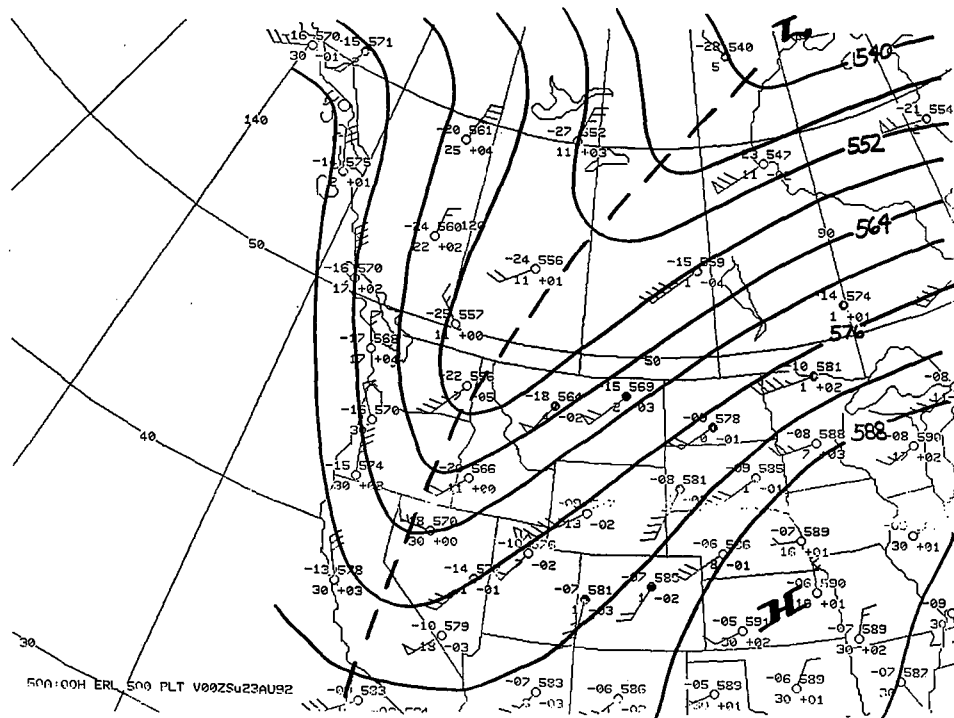 -16 570
30 -01
-15 571
-20 540
5
L
540
140
-20 561
25 +04
-27 552
11 +03
-21 554
23 547
11
552
575
+01
-24 560
22 +02
120
90
564
50
-16 570
17 +02
-24 556
11 +01
-15 559
-04
14 574
1 +01
-25 557
+00
-17
17 +04
576
50
-10 581
1 +02
-22 556
-05
-18 564
-02
-15 569
2 -03
-09 578
-01
-08
-16 570
588
-08 588
+03
-08 590
17 +02
40
-15 574
30 +02
-20 566
11 +00
-08 581
-09 585
-01
13 -02
570
30 +00
-07 589
16 +01
30 +01
-10 576
-02
-06 586
-01
-13 578
30 +03
-14
-01
-07 581
1 -03
-07 585
1 -02
-06 590
+01
H
-09
-10 579
18 -03
-05 591
30 +02
-07 589
30 +02
30
50A:00H ERL 500 PLT V00ZSu23AU92
583
-07 583
-03
-06 586
-05 589
+01
-06 589
30 +01
-07 587
30